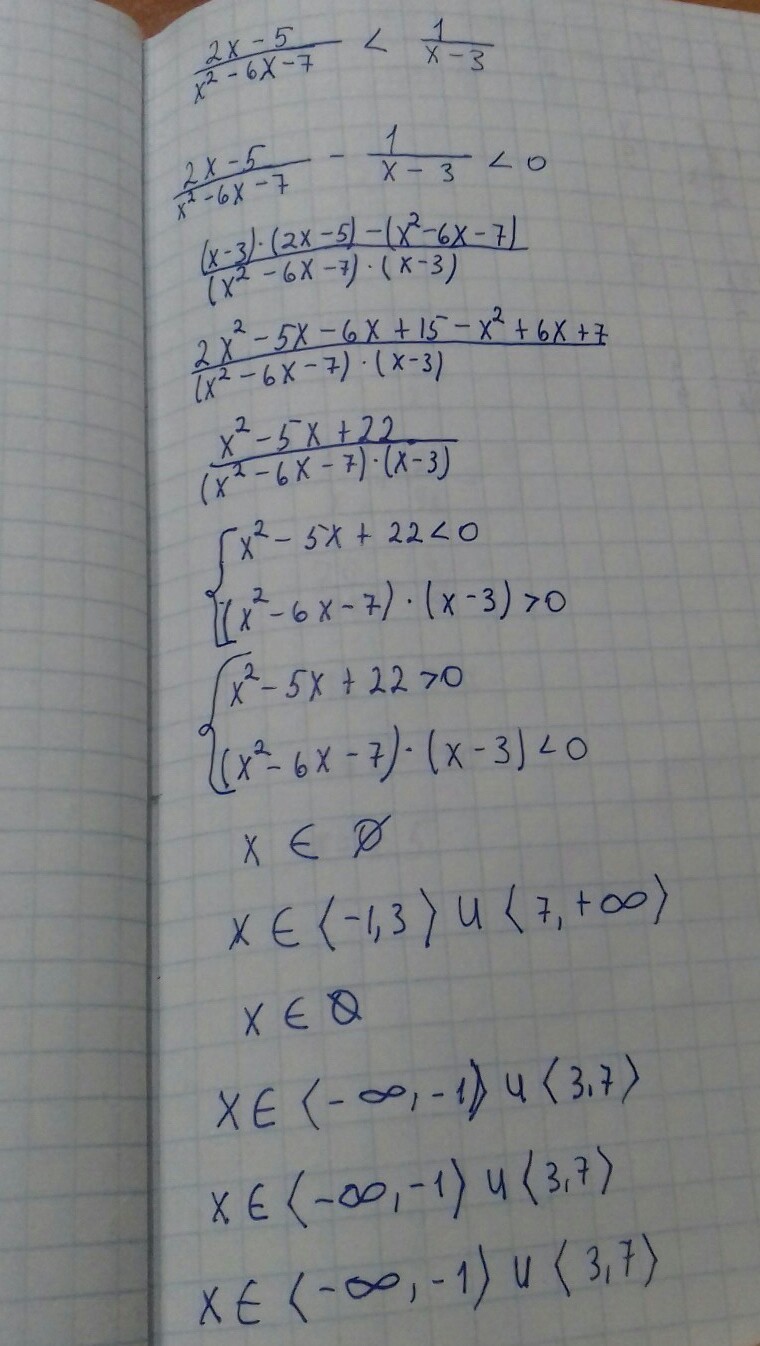 (2x-5)/(x²-6x-7) < 1/(x-3)
(2x-5)/(x²-6x-7) - 1/(x-3) < 0
((x-3)·(2x-5)-(x²-6x-7))/((x²-6x-7)·(x-3))
(2x²-5x-6x+15-x²+6x+7)/((x²-6x-7)·(x-3))
(x²-5x+22)/((x²-6x-7)·(x-3))
{x²-5x+22<0
(x²-6x-7)·(x-3)>0
{x²-5x+22>0
(x²-6x-7)·(x-3)<0
x ∈ Ø
x ∈ ⟨-1,3⟩ U ⟨7,+∞⟩
x ∈ Ø
x ∈ ⟨-∞,-1⟩ U ⟨3,7⟩
x ∈ ⟨-∞,-1⟩ U ⟨3,7⟩
x ∈ ⟨-∞,-1⟩ U ⟨3,7⟩